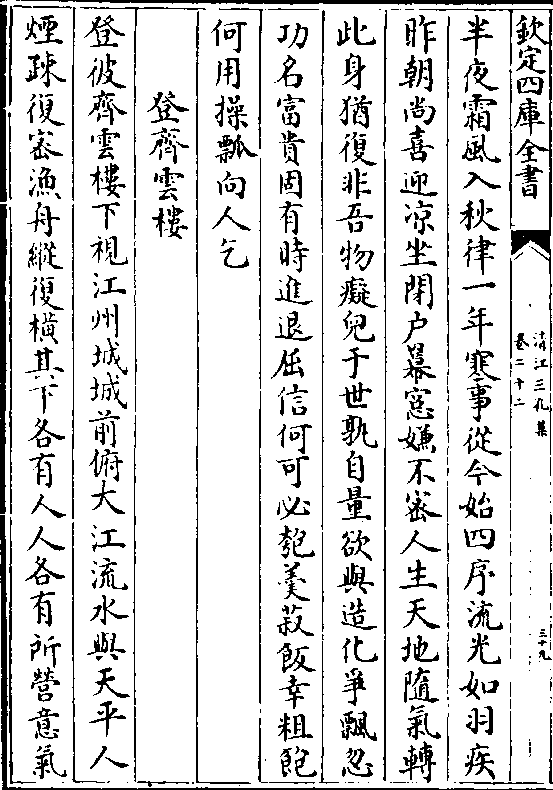 欽定四庫全書
清江三孔集
卷二十二
三十九
半夜霜風入秋律一年寒事從今始四序流光如羽疾
昨朝尚喜迎凉坐閉户幕窓嫌不密人生天地隨氣轉
此身猶復非吾物癡兒于世孰自量欲與造化爭飄忽
功名富貴固有時進退屈信何可必匏羮菽飯幸粗飽
何用操瓢向人乞
登齊雲樓
登彼齊雲樓下視江州城城前俯大江流水與天平人
煙踈復密漁舟縱復横其下各有人人各有所營意氣